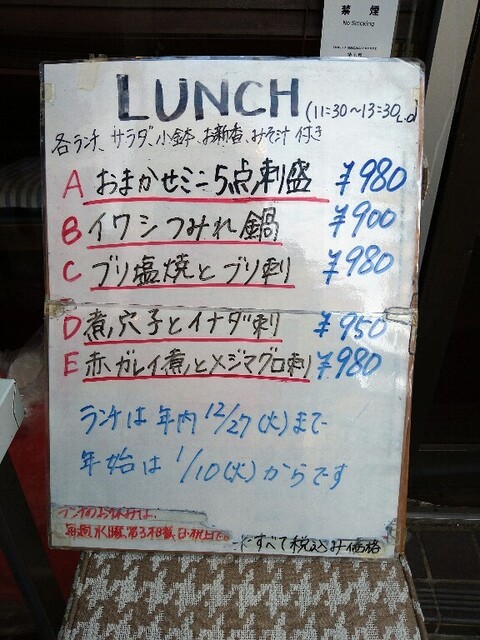 禁煙
No Smoking
LUNCH (11:30~13:30L.o)
各ランチ、サラダ、小鉢、お新香、みそ汁付き
A おまかせミニ5点刺盛 ¥980
B イワシつみれ鍋 ¥900
C ブリ塩焼とブリ刺 ¥980
D 煮穴子とイナダ刺 ¥950
E 赤ガレイ煮とメジマグロ刺 ¥980
ランチは年内12/27(火)まで
年始は1/10(火)からです
ランチのお休みは、
毎週水曜、第3月曜、日・祝日です
※すべて税込み価格